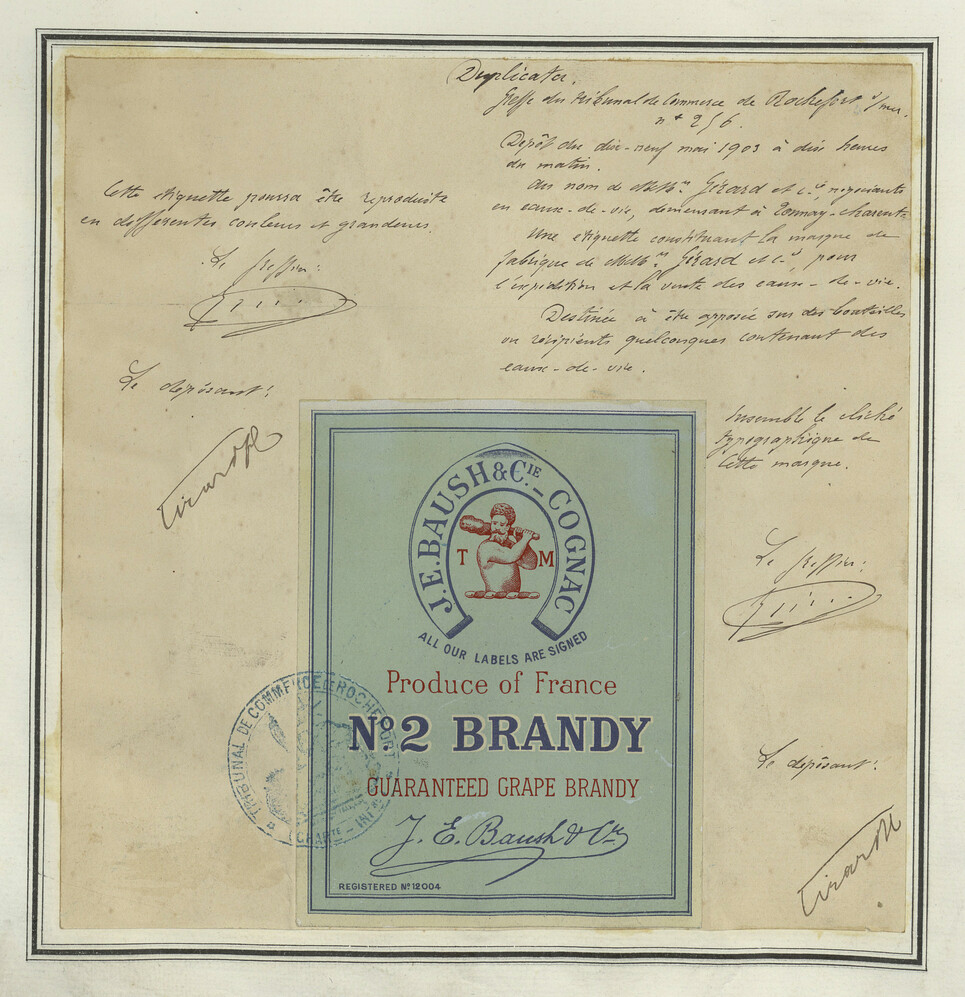 Duplicata.
Greffe du tribunal de Commerce de Rochefort s/mer.
n° 256.
Dépôt du dix-neuf mai 1903 à dix heures
du matin.
Au nom de MM. Gérard et Cie, négociants
en eaux-de-vie, demeurant à Tonnay-Charente
Une étiquette constituant la marque de
fabrique de MM. Gérard et Cie, pour
l'expédition et la vente des eaux-de-vie.
Destinée à être apposée sur des bouteilles
ou récipients quelconques contenant des
eaux-de-vie.
Cette étiquette pourra être reproduite
en différentes couleurs et grandeurs.
Le greffier:
Le déposant:
Ensemble le cliché
typographique de
cette marque.
Le greffier:
Le déposant:
J.E. BAUSH & CIE._COGNAC
T M
ALL OUR LABELS ARE SIGNED
Produce of France
No. 2 BRANDY
GUARANTEED GRAPE BRANDY
J. E. Baush & Cie
REGISTERED No 12004
TRIBUNAL DE COMMERCE DE ROCHEFORT
(CHARTE-INFRE)